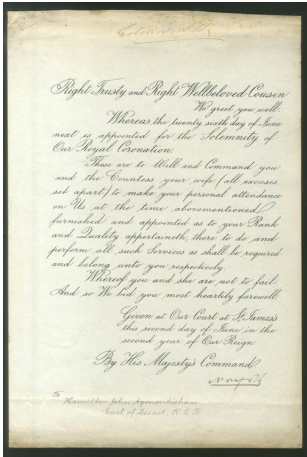 Right Trusty and Right Wellbeloved Cousin
We greet you well.
Whereas the twenty sixth day of June
next is appointed for the Solemnity of
Our Royal Coronation.
These are to Will and Command you
and the Countess your wife (all excuses
set apart) to make your personal attendance
on Us at the time abovementioned
furnished and appointed as to your Rank
and Quality appertaineth, there to do and
perform all such Services as shall be required
and belong unto you respectively.
Whereof you and she are not to fail.
And so We bid you most heartily farewell.
Given at Our Court at St. James's
this second day of June in the
second year of Our Reign
By His Majesty's Command
Norfolk
To
Hamilton John Agmondesham
Earl of Desart, K.C.B.